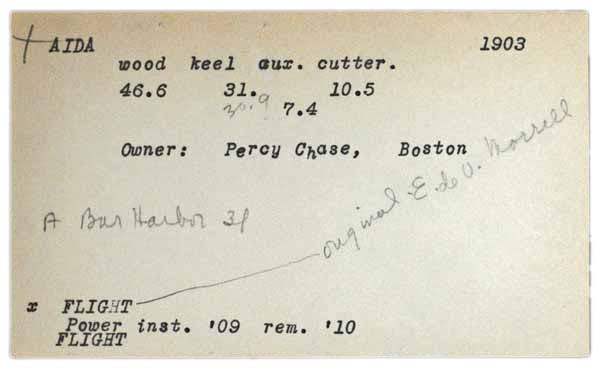 + AIDA 1903
wood keel aux. cutter.
46.6 31. 10.5
30.9 7.4
Owner: Percy Chase, Boston
A Bar Harbor 31
original E. de V. Morrell
x FLIGHT
Power inst. '09 rem. '10
FLIGHT